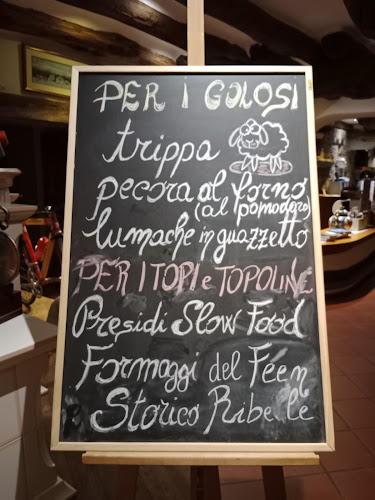 PER I GOLOSI
trippa
pecora al forno
(al pomodoro)
lumache in guazzetto
PER I TOPI e TOPOLINE
Presìdi Slow Food
Formaggi del Féen
Storico Ribelle